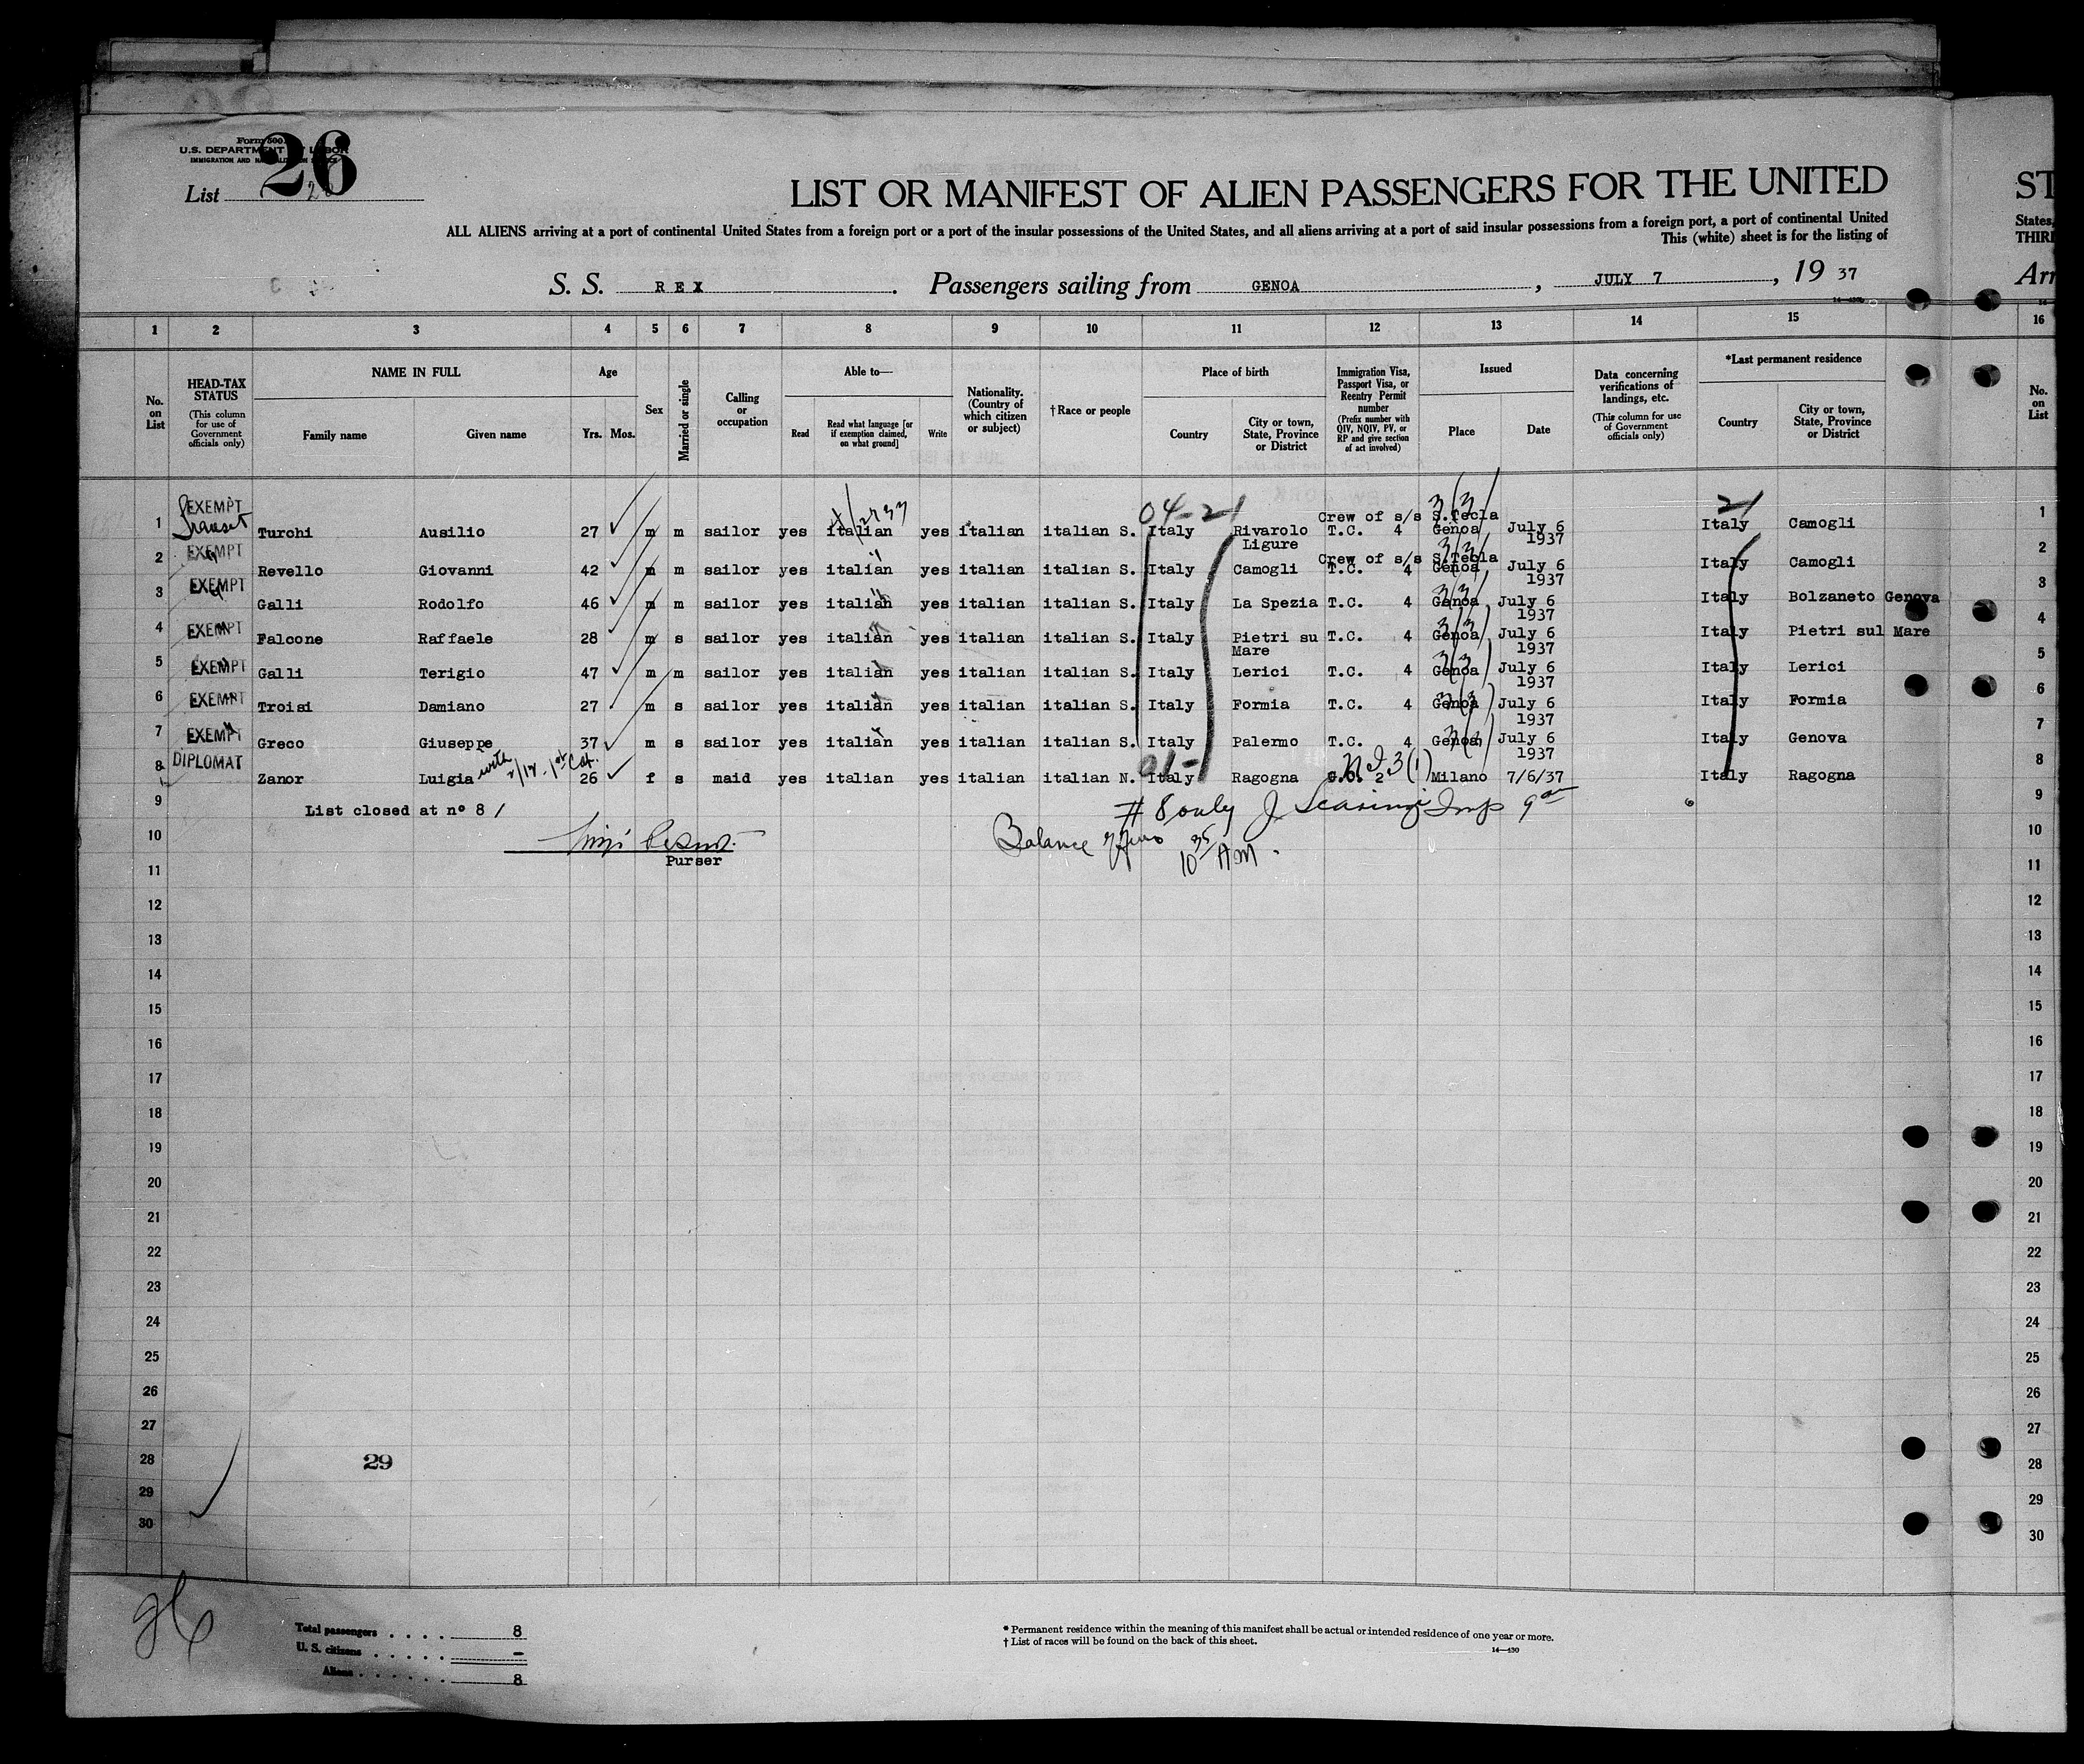 Form 500
U.S. DEPARTMENT OF LABOR
IMMIGRATION AND NATURALIZATION SERVICE
26
List
LIST OR MANIFEST OF ALIEN PASSENGERS FOR THE UNITED
ST
ALL ALIENS arriving at a port of continental United States from a foreign port or a port of the insular possessions of the United States, and all aliens arriving at a port of said insular possessions from a foreign port, a port of continental United
States,
This (white) sheet is for the listing of
THIRD
S. S. REX. Passengers sailing from GENOA, JULY 7, 19 37
Arr
1 2 3 4 5 6 7 8 9 10 11 12 13 14 15 16
No. on List
HEAD-TAX STATUS
(This column for use of Government officials only)
NAME IN FULL
Family name
Given name
Age
Yrs. Mos.
Sex
Married or single
Calling or occupation
Able to—
Read
Read what language [or if exemption claimed, on what ground]
Write
Nationality. (Country of which citizen or subject)
†Race or people
Place of birth
Country
City or town, State, Province or District
Immigration Visa, Passport Visa, or Reentry Permit number
(Prefix number with QIV, NQIV, PV, or RP and give section of act involved)
Issued
Place
Date
Data concerning verifications of landings, etc.
(This column for use of Government officials only)
*Last permanent residence
Country
City or town, State, Province or District
No. on List
04-21 3(3) 21
Crew of s/s S.Tecla
1 EXEMPT Transit Turchi Ausilio 27 m m sailor yes italian yes italian italian S. Italy Rivarolo Ligure T.C. 4 Genoa July 6 1937 Italy Camogli 1
Crew of s/s S.Tecla
2 EXEMPT Revello Giovanni 42 m m sailor yes italian yes italian italian S. Italy Camogli T.C. 4 Genoa July 6 1937 Italy Camogli 2
3 EXEMPT Galli Rodolfo 46 m m sailor yes italian yes italian italian S. Italy La Spezia T.C. 4 Genoa July 6 1937 Italy Bolzaneto Genova 3
4 EXEMPT Falcone Raffaele 28 m s sailor yes italian yes italian italian S. Italy Pietri su Mare T.C. 4 Genoa July 6 1937 Italy Pietri sul Mare 4
5 EXEMPT Galli Terigio 47 m m sailor yes italian yes italian italian S. Italy Lerici T.C. 4 Genoa July 6 1937 Italy Lerici 5
6 EXEMPT Troisi Damiano 27 m s sailor yes italian yes italian italian S. Italy Formia T.C. 4 Genoa July 6 1937 Italy Formia 6
7 EXEMPT Greco Giuseppe 37 m s sailor yes italian yes italian italian S. Italy Palermo T.C. 4 Genoa July 6 1937 Italy Genova 7
8 DIPLOMAT Zanor Luigia with 26 f s maid yes italian yes italian italian N. Italy Ragogna 3(1) Milano 7/6/37 Italy Ragogna 8
9 List closed at nº 8 / # 8 only 9
10 Balance 10
Purser
10 35 AM.
11 11
12 12
13 13
14 14
15 15
16 16
17 17
18 18
19 19
20 20
21 21
22 22
23 23
24 24
25 25
26 26
27 27
28 29 28
29 29
30 30
Total passengers . . . . 8
U. S. citizens . . . . . –
Aliens . . . . . . 8
* Permanent residence within the meaning of this manifest shall be actual or intended residence of one year or more.
† List of races will be found on the back of this sheet.
14—430